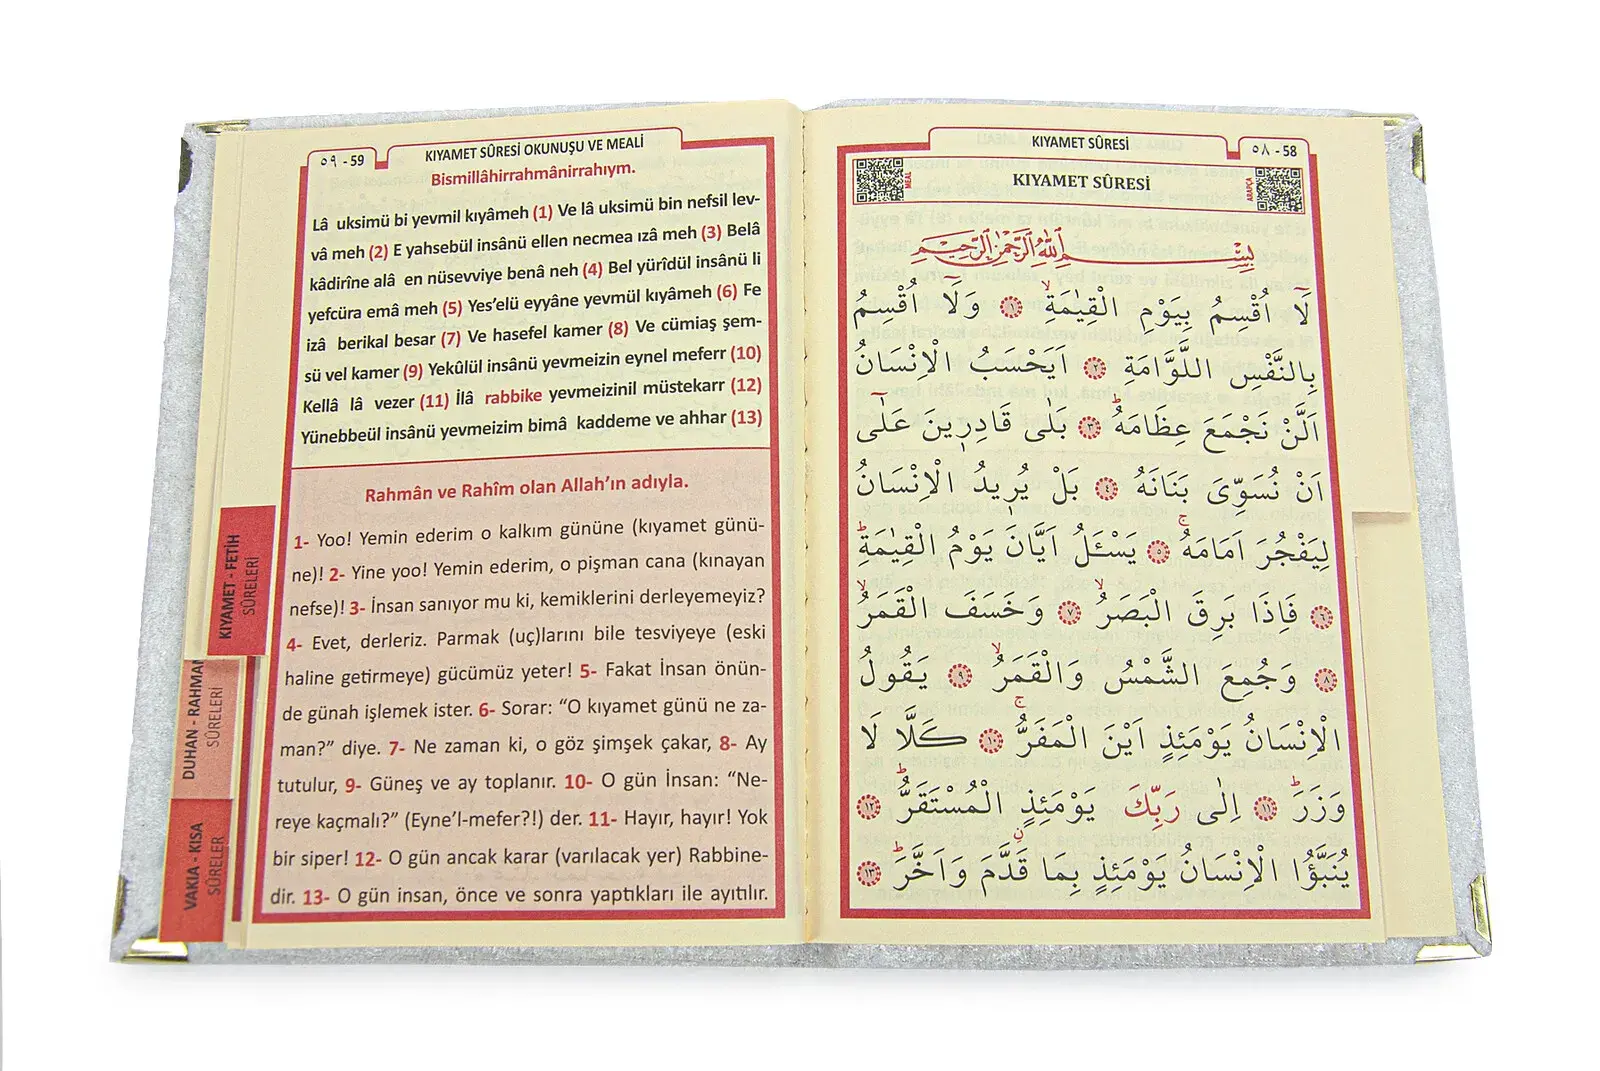 ٥٩ - 59
KIYAMET SÛRESİ OKUNUŞU VE MEALİ
Bismillâhirrahmânirrahıym.
Lâ uksimü bi yevmil kıyâmeh (1) Ve lâ uksimü bin nefsil lev-
vâ meh (2) E yahsebül insânü ellen necmea ızâ meh (3) Belâ
kâdirîne alâ en nüsevviye benâ neh (4) Bel yürîdül insânü li
yefcüra emâ meh (5) Yes'elü eyyâne yevmül kıyâmeh (6) Fe
izâ berikal besar (7) Ve hasefel kamer (8) Ve cümiaş şem-
sü vel kamer (9) Yekûlül insânü yevmeizin eynel meferr (10)
Kellâ lâ vezer (11) İlâ rabbike yevmeizinil müstekarr (12)
Yünebbeül insânü yevmeizim bimâ kaddeme ve ahhar (13)
Rahmân ve Rahîm olan Allah'ın adıyla.
1- Yoo! Yemin ederim o kalkım gününe (kıyamet günü-
ne)! 2- Yine yoo! Yemin ederim, o pişman cana (kınayan
nefse)! 3- İnsan sanıyor mu ki, kemiklerini derleyemeyiz?
4- Evet, derleriz. Parmak (uç)larını bile tesviyeye (eski
haline getirmeye) gücümüz yeter! 5- Fakat İnsan önün-
de günah işlemek ister. 6- Sorar: "O kıyamet günü ne za-
man?" diye. 7- Ne zaman ki, o göz şimşek çakar, 8- Ay
tutulur, 9- Güneş ve ay toplanır. 10- O gün İnsan: "Ne-
reye kaçmalı?" (Eyne'l-mefer?!) der. 11- Hayır, hayır! Yok
bir siper! 12- O gün ancak karar (varılacak yer) Rabbine-
dir. 13- O gün insan, önce ve sonra yaptıkları ile ayıtılır.
KIYAMET - FETİH
SÛRELERİ
DUHAN - RAHMAN
SÛRELERİ
VAKIA - KISA
SÛRELER
KIYAMET SÛRESİ
٥٨ - 58
MEAL
KIYAMET SÛRESİ
ARAPÇA
بِسْمِ اللّٰهِ الرَّحْمٰنِ الرَّحِيمِ
لَٓا اُقْسِمُ بِيَوْمِ الْقِيٰمَةِۙ ﴿١﴾ وَلَٓا اُقْسِمُ
بِالنَّفْسِ اللَّوَّامَةِ ﴿٢﴾ اَيَحْسَبُ الْاِنْسَانُ
اَلَّنْ نَجْمَعَ عِظَامَهُۜ ﴿٣﴾ بَلٰى قَادِرِينَ عَلٰٓى
اَنْ نُسَوِّىَ بَنَانَهُ ﴿٤﴾ بَلْ يُرِيدُ الْاِنْسَانُ
لِيَفْجُرَ اَمَامَهُۚ ﴿٥﴾ يَسْـَٔلُ اَيَّانَ يَوْمُ الْقِيٰمَةِۜ
﴿٦﴾ فَاِذَا بَرِقَ الْبَصَرُۙ ﴿٧﴾ وَخَسَفَ الْقَمَرُۙ
﴿٨﴾ وَجُمِعَ الشَّمْسُ وَالْقَمَرُۙ ﴿٩﴾ يَقُولُ
الْاِنْسَانُ يَوْمَئِذٍ اَيْنَ الْمَفَرُّۚ ﴿١٠﴾ كَلَّا لَا
وَزَرَۜ ﴿١١﴾ اِلٰى رَبِّكَ يَوْمَئِذٍ الْمُسْتَقَرُّۜ ﴿١٢﴾
يُنَبَّؤُا الْاِنْسَانُ يَوْمَئِذٍ بِمَا قَدَّمَ وَاَخَّرَۜ ﴿١٣﴾